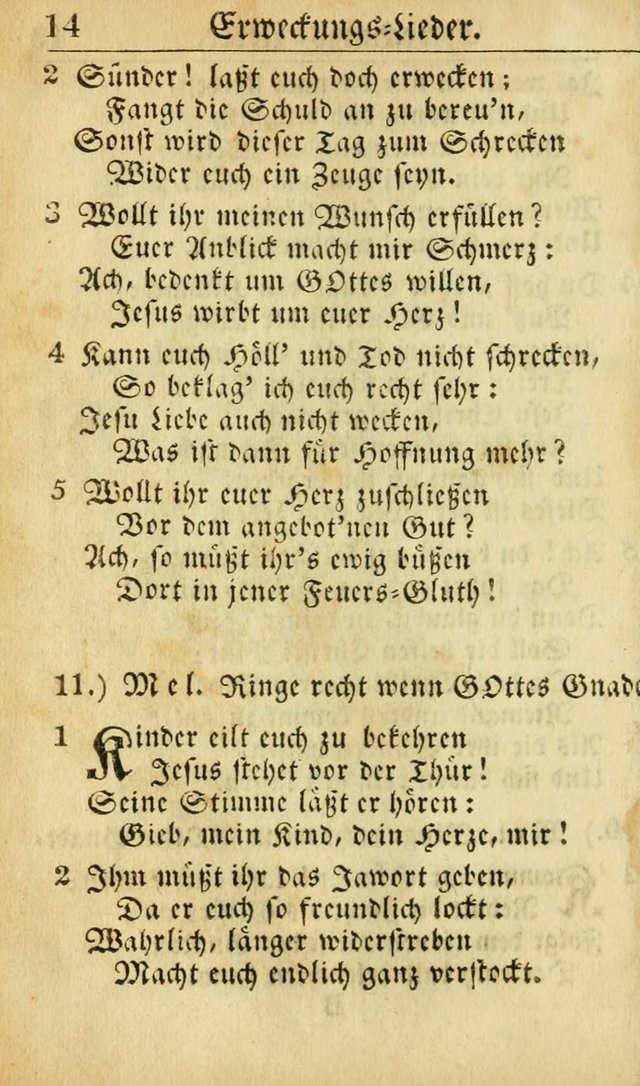 14 Erweckungs-Lieder.
2 Sünder! laßt euch doch erwecken;
Fangt die Schuld an zu bereu'n,
Sonst wird dieser Tag zum Schrecken
Wider euch ein Zeuge seyn.
3 Wollt ihr meinen Wunsch erfüllen?
Euer Anblick macht mir Schmerz:
Ach, bedenkt um GOttes willen,
Jesus wirbt um euer Herz!
4 Kann euch Höll' und Tod nicht schrecken,
So beklag' ich euch recht sehr:
Jesu Liebe auch nicht wecken,
Was ist dann für Hoffnung mehr?
5 Wollt ihr euer Herz zuschließen
Vor dem angebot'nen Gut?
Ach, so müßt ihr's ewig büßen
Dort in jener Feuers-Gluth!
11.) Mel. Ringe recht wenn GOttes Gnade
1 Kinder eilt euch zu bekehren
Jesus stehet vor der Thür!
Seine Stimme läßt er hören:
Gieb, mein Kind, dein Herze, mir!
2 Ihm müßt ihr das Jawort geben,
Da er euch so freundlich lockt:
Wahrlich, länger widerstreben
Macht euch endlich ganz verstockt.